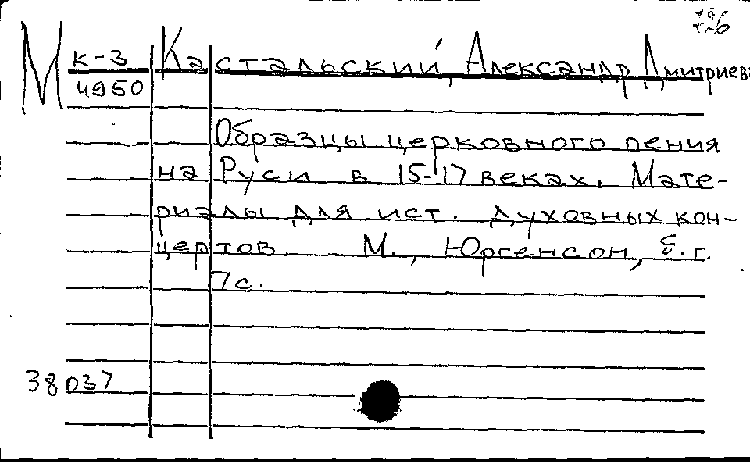 М К-3 Кастальский, Александр Дмитриев
4950
Образцы церковного пения
на Руси в 15-17 веках. Мате-
риалы для ист. духовных кон-
цертов М., Юргенсон, б.г.
7с.
38037